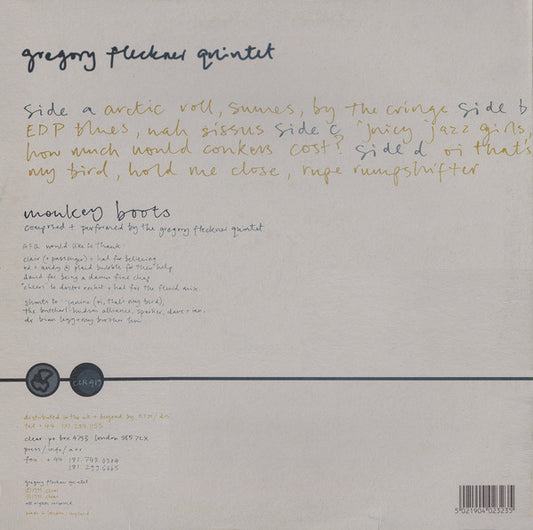 gregory fleckner quintet
side a arctic roll, sumes, by the cringe side b
EDP blues, nah sissus side c juicy jazz girls,
how much would conkers cost? side d oi that's
my bird, hold me close, rupe rumpshifter
monkey boots
composed + performed by the gregory fleckner quintet
GFQ would like to thank:
clair (+ passenger) + hal for believing
ed + andy @ plaid bubble for their help
david for being a damn fine chap
cheers to doctor rockit + hal for the fleckd mix.
(oi, that's my bird),
alliance, sparker, dave + ian,
my brother
clear
distributed in the uk + beyond by
tel + 44 181.
clear po box 4793 london SE5 7CX
press / info /
fax +44 181.748.0304
181.299.
gregory fleckner quintet
clear
clear
all rights reserved
made in london, england
5 021904 023235